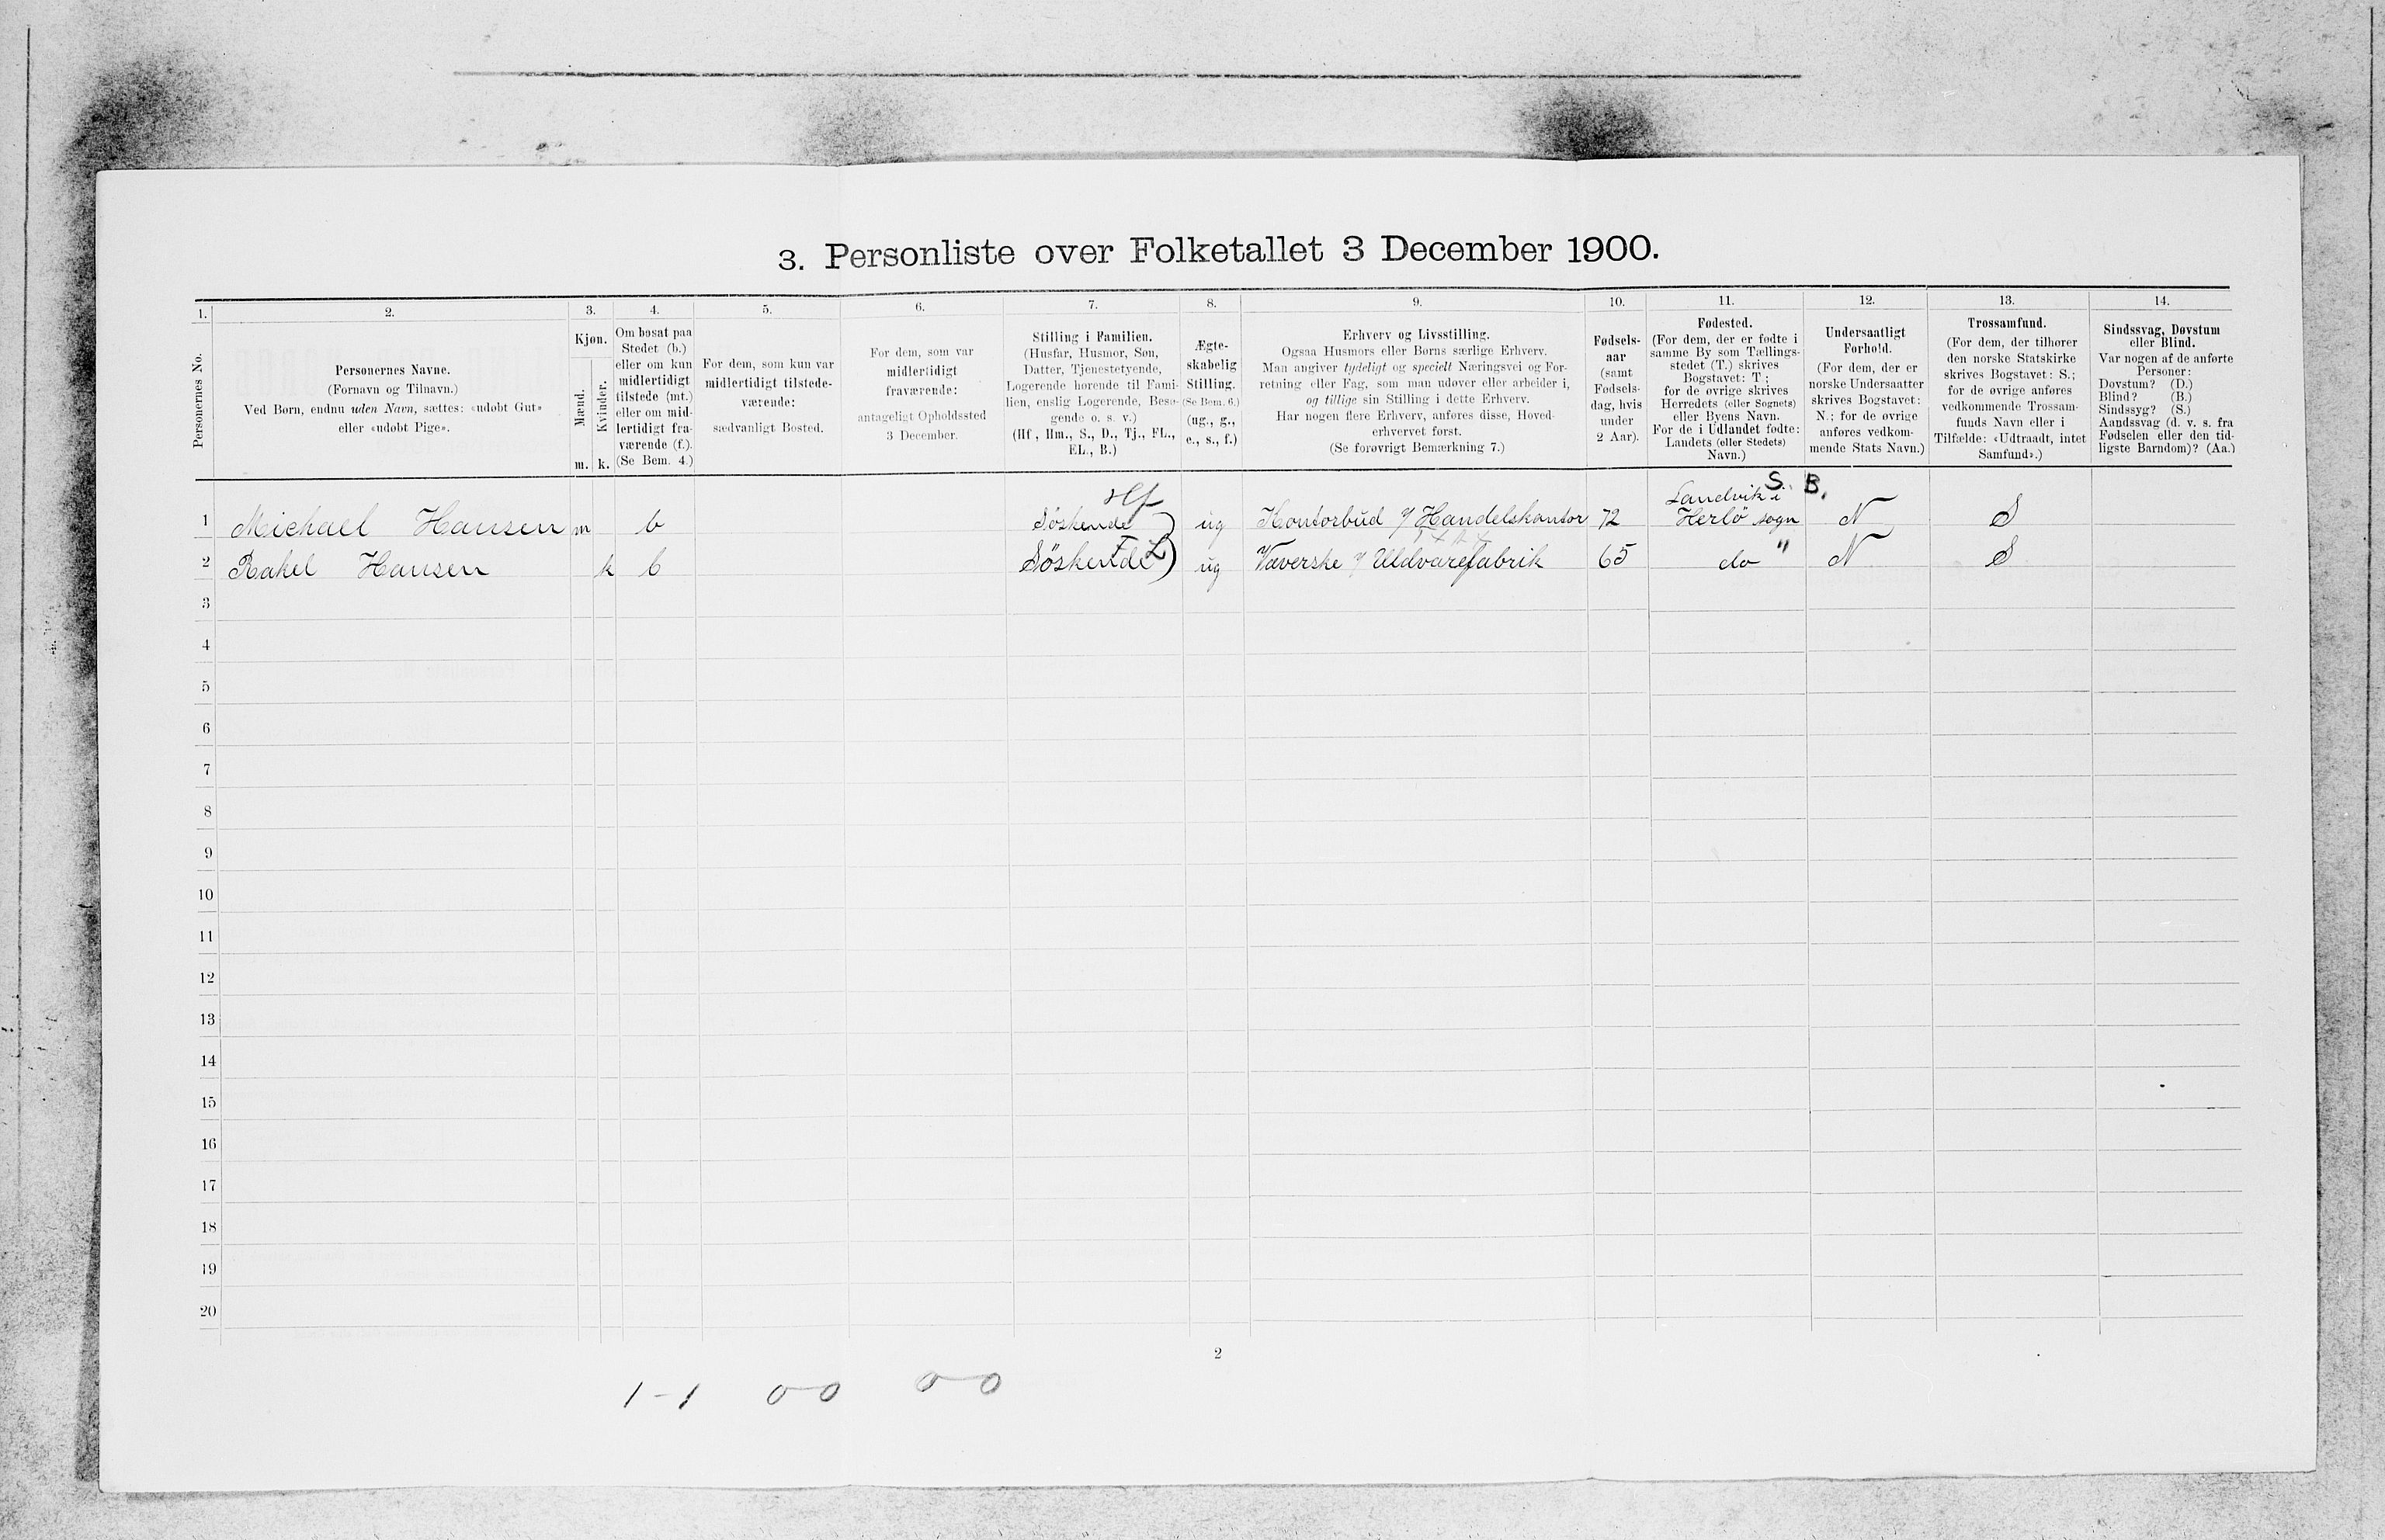 3. Personliste over Folketallet 3 December 1900.
1. 2. 3. 4. 5. 6. 7. 8. 9. 10. 11. 12. 13. 14.
Personernes No.
Personernes Navne.
(Fornavn og Tilnavn.)
Ved Børn, endnu uden Navn, sættes: «udøbt Gut»
eller «udøbt Pige».
Kjøn.
Mænd.
Kvinder.
m. k.
Om bosat paa
Stedet (b.)
eller om kun
midlertidigt
tilstede (mt.)
eller om mid-
lertidigt fra-
værende (f.).
(Se Bem. 4.)
For dem, som kun var
midlertidigt tilstede-
værende:
sædvanligt Bosted.
For dem, som var
midlertidigt
fraværende:
antageligt Opholdssted
3 December.
Stilling i Familien.
(Husfar, Husmor, Søn,
Datter, Tjenestetyende,
Logerende hørende til Fami-
lien, enslig Logerende, Besø-
gende o. s. v.)
(Hf., Hm., S., D., Tj., FL.,
EL., B.)
Ægte-
skabelig
Stilling.
(Se Bem. 6.)
(ug., g.,
e., s., f.)
Erhverv og Livsstilling.
Ogsaa Husmors eller Børns særlige Erhverv.
Man angiver tydeligt og specielt Næringsvei og For-
retning eller Fag, som man udøver eller arbeider i,
og tillige sin Stilling i dette Erhverv.
Har nogen flere Erhverv, anføres disse, Hoved-
erhvervet først.
(Se forøvrigt Bemærkning 7.)
Fødsels-
aar
(samt
Fødsels-
dag, hvis
under
2 Aar).
Fødested.
(For dem, der er fødte i
samme By som Tællings-
stedet (T.) skrives
Bogstavet: T.;
for de øvrige skrives
Herredets (eller Sognets)
eller Byens Navn.
For de i Udlandet fødte:
Landets (eller Stedets)
Navn.)
Undersaatligt
Forhold.
(For dem, der er
norske Undersaatter
skrives Bogstavet:
N.; for de øvrige
anføres vedkom-
mende Stats Navn.)
Trossamfund.
(For dem, der tilhører
den norske Statskirke
skrives Bogstavet: S.;
for de øvrige anføres
vedkommende Trossam-
funds Navn eller i
Tilfælde: «Udtraadt, intet
Samfund».)
Sindssvag, Døvstum
eller Blind.
Var nogen af de anførte
Personer:
Døvstum? (D.)
Blind? (B.)
Sindssyg? (S.)
Aandssvag (d. v. s. fra
Fødselen eller den tid-
ligste Barndom)? (Aa.)
Hf Landvik i S. B.
1 Michael Hansen m b Söskende ug Kontorbud / Handelskontor 72 Herlö sogn N S
2 Rakel Hansen k b Söskende FL ug Væverske / Uldvarefabrik 65 do " N S
3
4
5
6
7
8
9
10
11
12
13
14
15
16
17
18
19
20
2
1-1 0-0 0-0